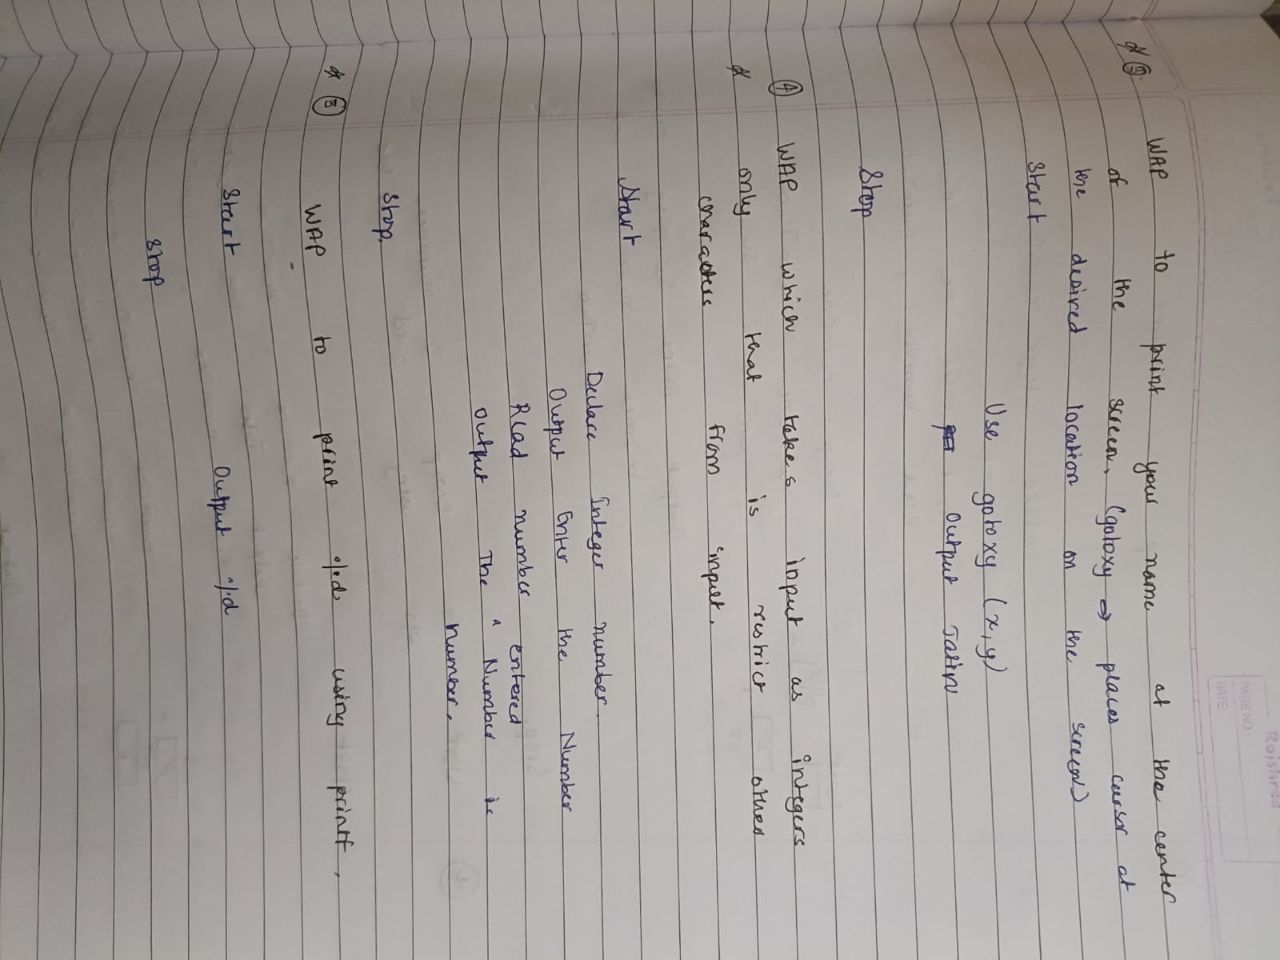 Rajshree
PAGE NO.
DATE:
③ WAP to print your name at the center
of the screen. (gotoxy → places cursor at
the desired location on the screen)
Start
Use gotoxy (x,y)
Output Jatin
Stop
④ WAP which takes input as integers
only that is restrict other
characters from input.
Start
Declare Integer number.
Output Enter the Number
Read number
Output The ^ entered Number is
number.
Stop.
⑤ WAP to print %d using printf.
Start
Output %d
Stop